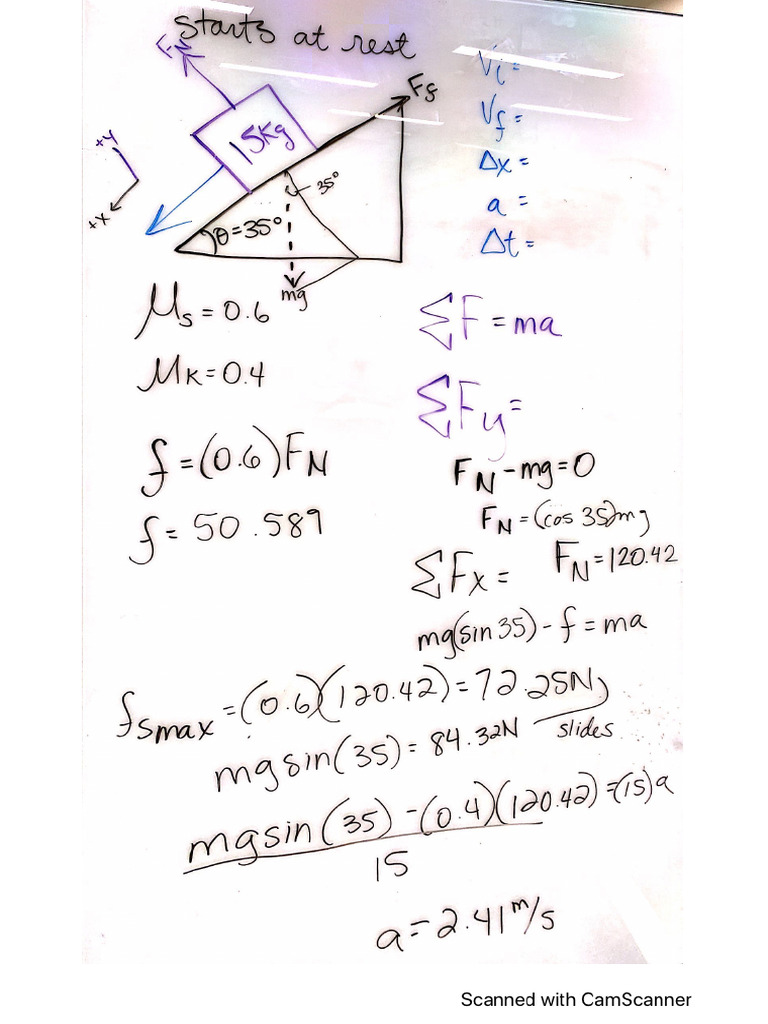 starts at rest
FN
Fs
Vi =
Vf =
Δx =
a =
Δt =
15Kg
+y
+x
35°
θ=35°
mg
μs = 0.6
μK = 0.4
f = (0.6)FN
f = 50.589
ΣF = ma
ΣFy =
FN - mg = 0
FN = (cos 35)mg
FN = 120.42
ΣFx =
mg(sin 35) - f = ma
fsmax = (0.6)(120.42) = 72.25N
mg sin(35) = 84.32N
slides
mg sin(35) - (0.4)(120.42) = (15)a
15
a = 2.41 m/s
Scanned with CamScanner